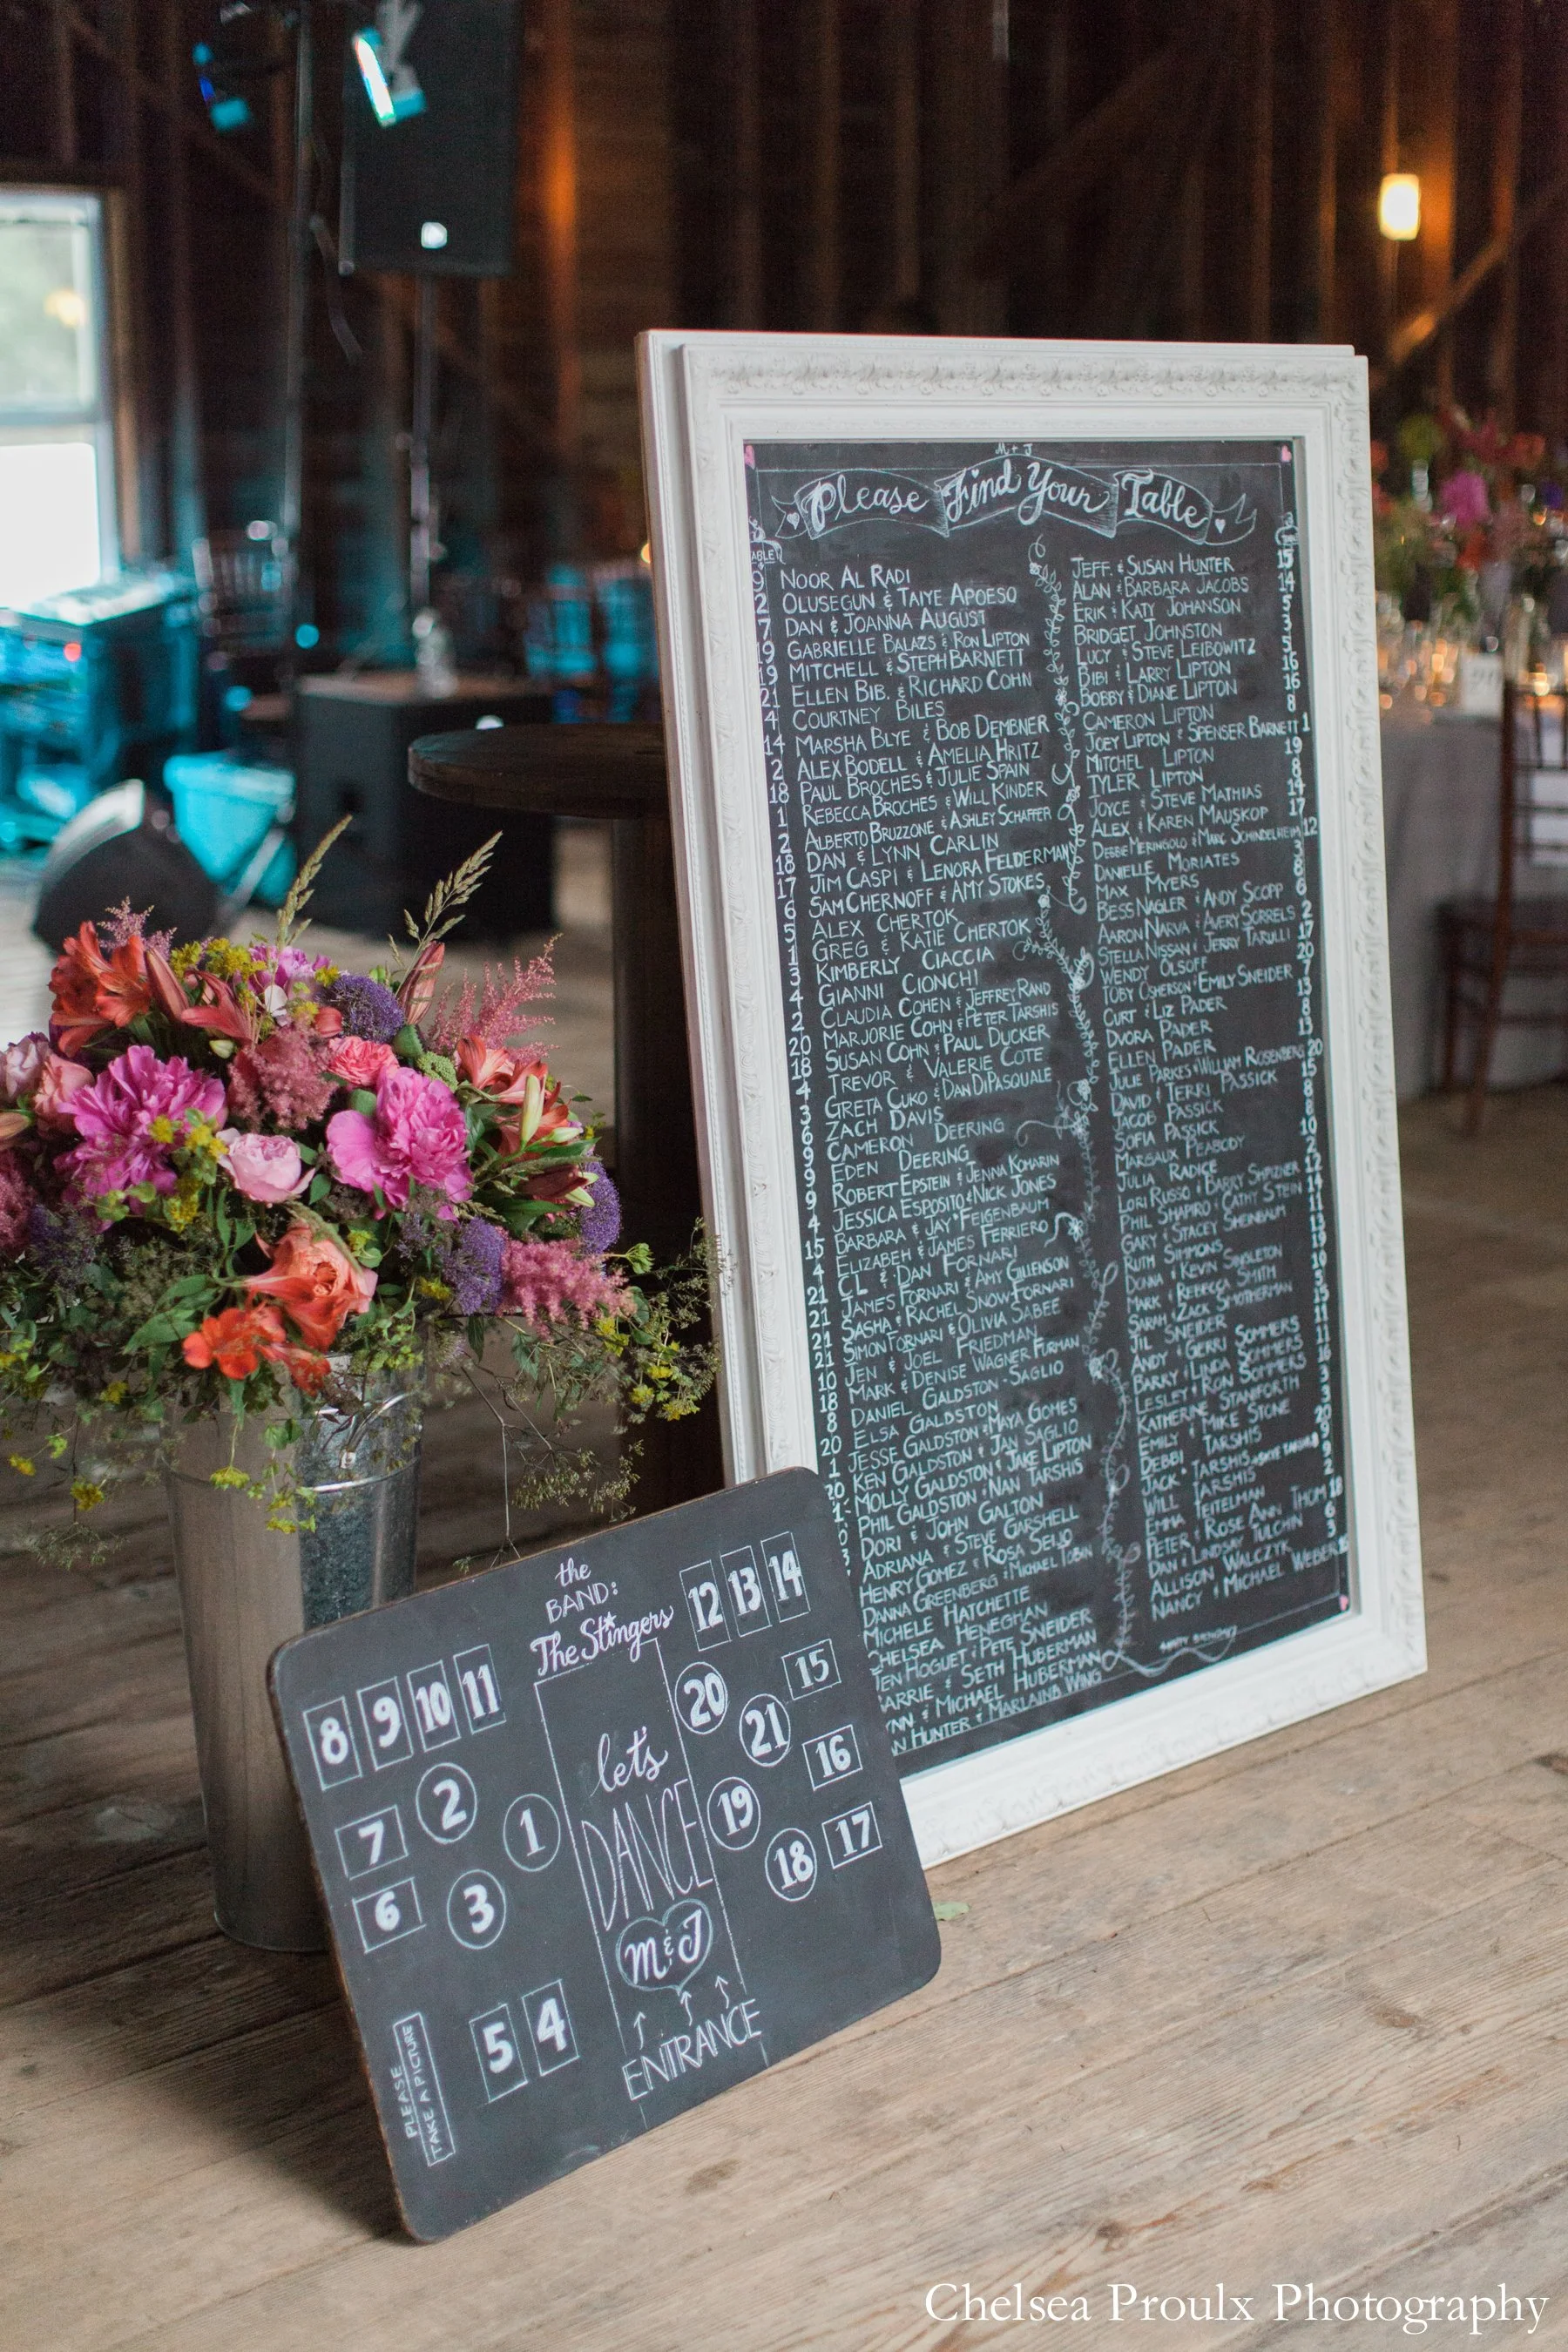 M + J
Please Find Your Table
9 NOOR AL RADI
2 OLUSEGUN & TAIYE APOESO
7 DAN & JOANNA AUGUST
19 GABRIELLE BALAZS & RON LIPTON
19 MITCHELL & STEPH BARNETT
21 ELLEN BIB. & RICHARD COHN
4 COURTNEY BILES
14 MARSHA BLYE & BOB DEMBNER
2 ALEX BODELL & AMELIA HRITZ
18 PAUL BROCHES & JULIE SPAIN
1 REBECCA BROCHES & WILL KINDER
2 ALBERTO BRUZZONE & ASHLEY SCHAFFER
18 DAN & LYNN CARLIN
17 JIM CASPI & LENORA FELDERMAN
6 SAM CHERNOFF & AMY STOKES
5 ALEX CHERTOK
GREG & KATIE CHERTOK
3 KIMBERLY CIACCIA
4 GIANNI CIONCHI
2 CLAUDIA COHEN & JEFFREY RAND
20 MARJORIE COHN & PETER TARSHIS
18 SUSAN COHN & PAUL DUCKER
4 TREVOR & VALERIE COTE
3 GRETA CUKO & DAN DIPASQUALE
6 ZACH DAVIS
9 CAMERON DEERING
9 EDEN DEERING
9 ROBERT EPSTEIN & JENNA KOMARIN
4 JESSICA ESPOSITO & NICK JONES
15 BARBARA & JAY FEIGENBAUM
4 ELIZABEH & JAMES FERRIERO
21 CL & DAN FORNARI
21 JAMES FORNARI & AMY GILLENSON
21 SASHA & RACHEL SNOW FORNARI
21 SIMON FORNARI & OLIVIA SABEE
10 JEN & JOEL FRIEDMAN
18 MARK & DENISE WAGNER FURMAN
8 DANIEL GALDSTON-SAGLIO
20 ELSA GALDSTON
1 JESSE GALDSTON & MAYA GOMES
20 KEN GALDSTON & JAN SAGLIO
MOLLY GALDSTON & JAKE LIPTON
PHIL GALDSTON & NAN TARSHIS
DORI & JOHN GALTON
ADRIANA & STEVE GARSHELL
HENRY GOMEZ & ROSA SEIJO
DANNA GREENBERG & MICHAEL TOBIN
MICHELE HATCHETTE
CHELSEA HENEGHAN
JEN HOGUET & PETE SNEIDER
ARRIE & SETH HUBERMAN
NN & MICHAEL HUBERMAN
N HUNTER & MARLAINA WING
JEFF & SUSAN HUNTER 15
ALAN & BARBARA JACOBS 14
ERIK & KATY JOHANSON 5
BRIDGET JOHNSTON 3
LUCY & STEVE LEIBOWITZ 5
BIBI & LARRY LIPTON 16
BOBBY & DIANE LIPTON 16
CAMERON LIPTON 8
JOEY LIPTON & SPENSER BARNETT 1
MITCHEL LIPTON 19
TYLER LIPTON 8
JOYCE & STEVE MATHIAS 14
ALEX & KAREN MAUSKOP 17
DEBBIE MERINGOLO & MARC SCHINDELHEIM 12
DANIELLE MORIATES 3
MAX MYERS 8
BESS NAGLER & ANDY SCOPP 6
AARON NARVA & AVERY SORRELS 2
STELLA NISSAN & JERRY TARULLI 17
WENDY OLSOFF 20
TOBY OSHERSON & EMILY SNEIDER 7
CURT & LIZ PADER 13
DVORA PADER 8
ELLEN PADER 13
JULIE PARKES & WILLIAM ROSENBERG 20
DAVID & TERRI PASSICK 15
JACOB PASSICK 8
SOFIA PASSICK 8
MARGAUX PEABODY 10
JULIA RADICE 2
LORI RUSSO & BARRY SHPIZNER 12
PHIL SHAPIRO & CATHY STEIN 14
GARY & STACEY SHEINBAUM 11
RUTH SIMMONS 13
DONNA & KEVIN SINGLETON 19
MARK & REBECCA SMITH 10
SARAH & ZACK SMOTHERMAN 5
JIL SNEIDER 15
ANDY & GERRI SOMMERS 11
BARRY & LINDA SOMMERS 11
LESLEY & RON SOMMERS 16
KATHERINE STANIFORTH 3
EMILY & MIKE STONE 3
DEBBI TARSHIS 20
JACK TARSHIS 9
WILL TARSHIS
EMMA TEITELMAN 2
PETER & ROSE ANN THOM 18
DAN & LINDSAY TULCHIN 6
ALLISON WALCZYK 3
NANCY & MICHAEL WEBER
the
BAND:
The Stingers
12 13 14
8 9 10 11
20 15
21
2
let's
16
7 1
DANCE
19
18 17
6 3
M & J
5 4
ENTRANCE
PLEASE
TAKE A PICTURE
Chelsea Proulx Photography